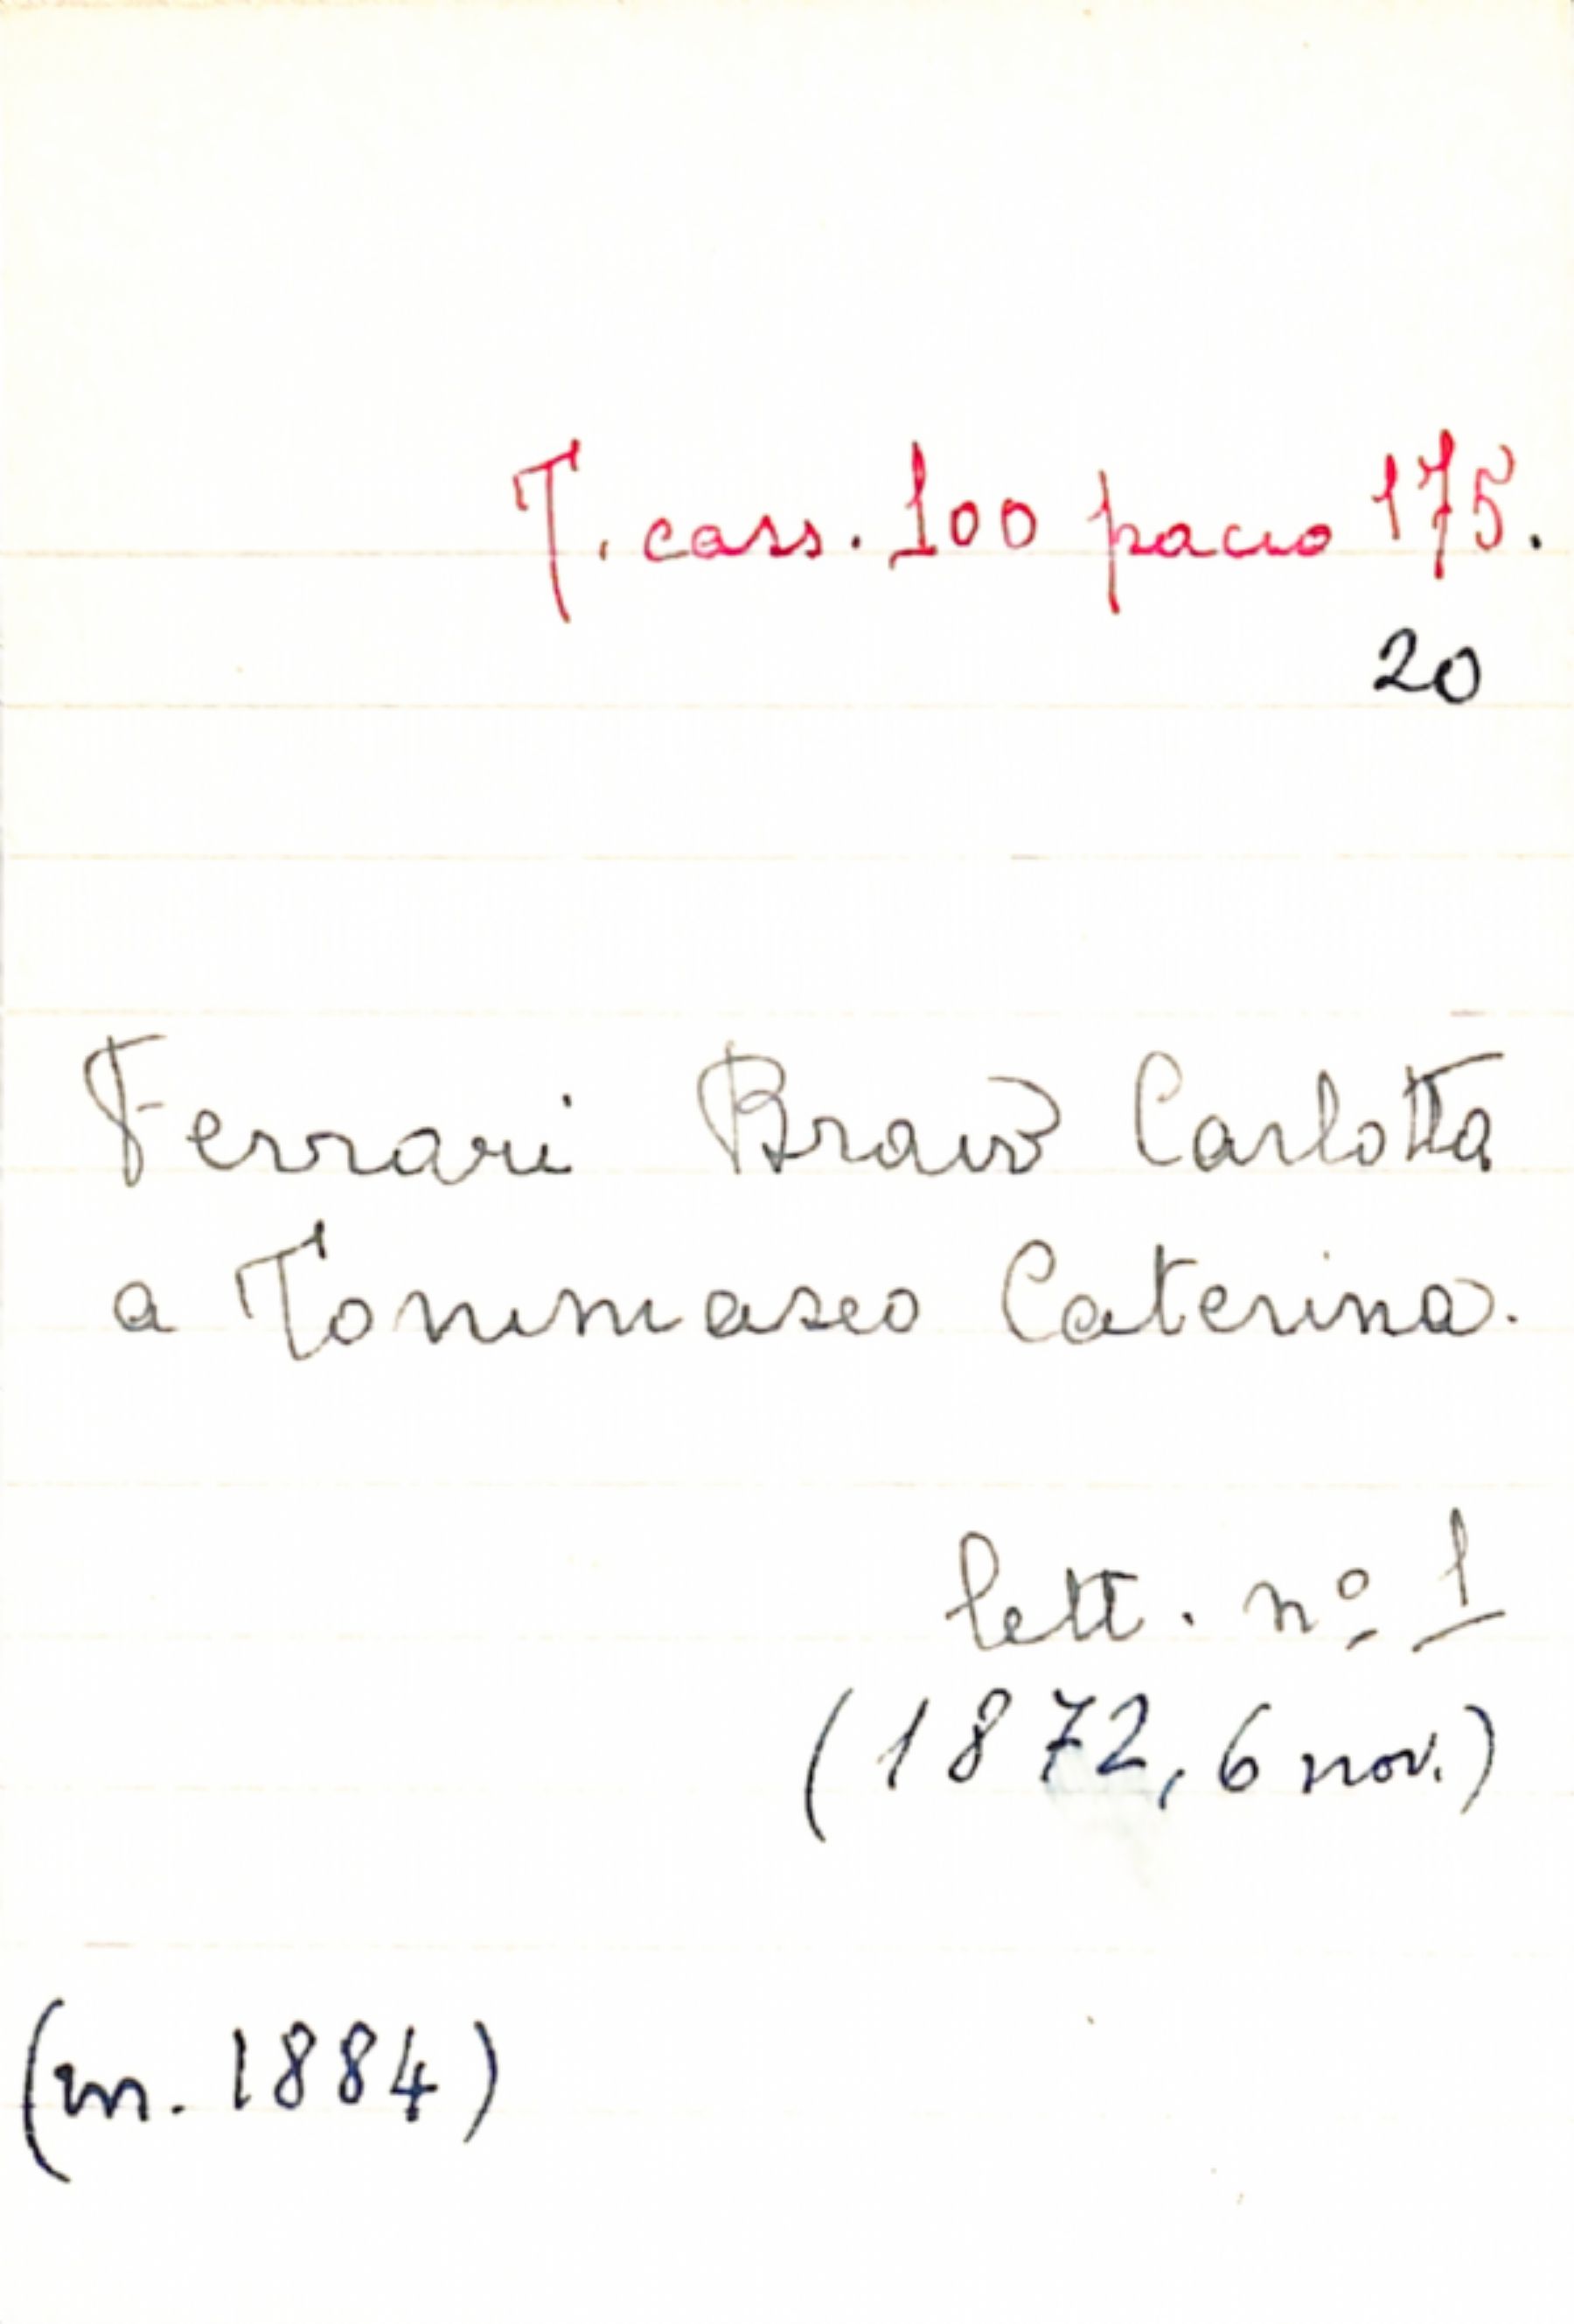 T. cass. 100 pacco 175.
20
Ferrari Bravo Carlotta
a Tommaseo Caterina.
lett. nº 1
(1872, 6 nov.)
(m. 1884)